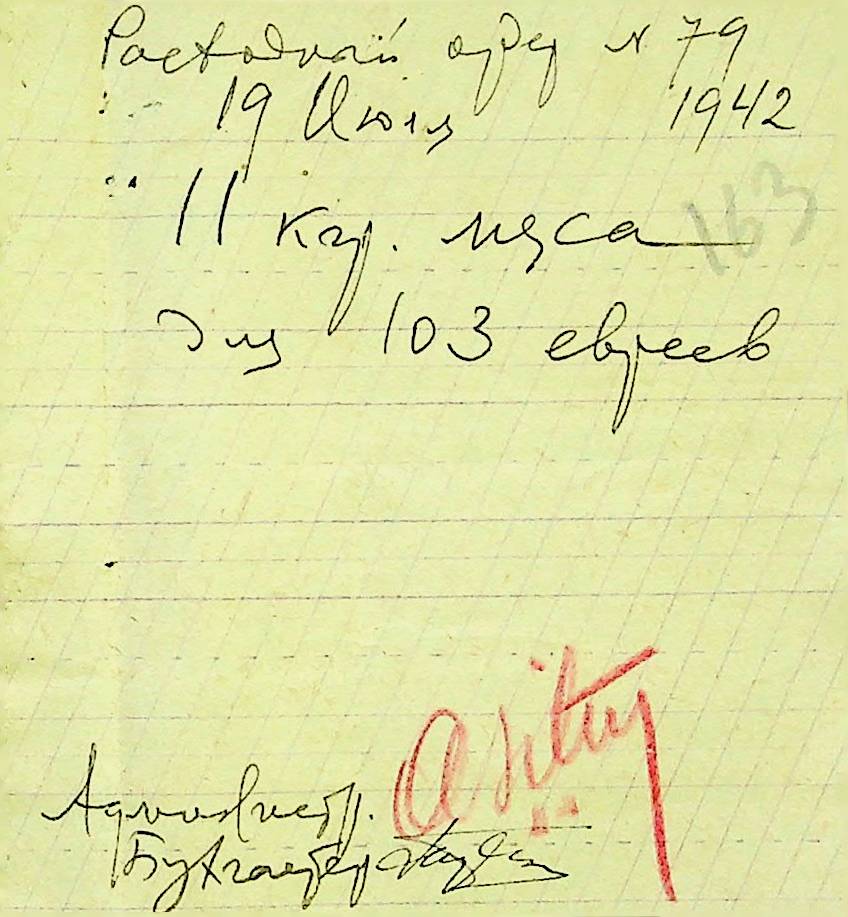 Расходный ордер № 79
19 Июля 1942
11 кгр. мяса
163
для 103 евреев
Администр.
Бухгалтер